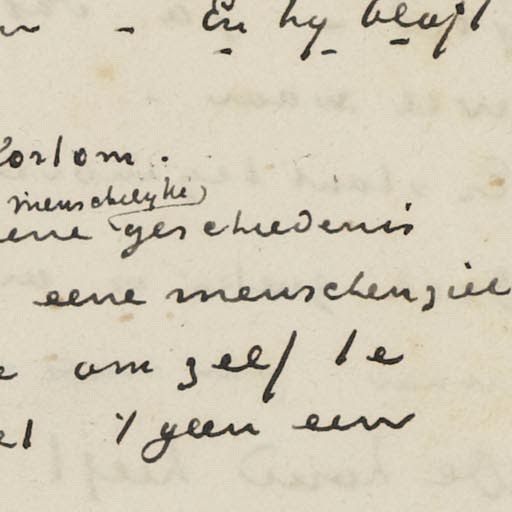 En hy blaft
Kortom.
menschelyke
eene geschiedenis
eene menschenziel
om zelf te
't geen een